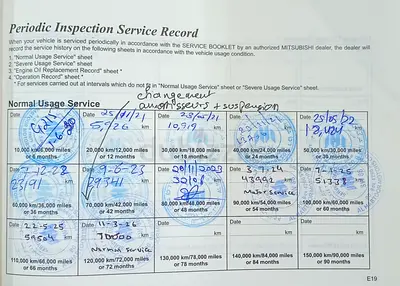 Periodic Inspection Service Record
When your vehicle is serviced periodically in accordance with the SERVICE BOOKLET by an authorized MITSUBISHI dealer, the dealer will
record the service history on the following sheets in accordance with the vehicle usage condition.
1. "Normal Usage Service" sheet
2. "Severe Usage Service" sheet
3. "Engine Oil Replacement Record" sheet *
4. "Operation Record" sheet *
* For services carried out at intervals which do not fit in "Normal Usage Service" sheet or "Severe Usage Service" sheet.
changement
amortisseurs + suspension
Normal Usage Service
Date Date 25/01/21 Date 23/05/21 Date Date 25/05/22
5,926 km 10,919 km km km
10,000 km/6,000 miles or 6 months
20,000 km/12,000 miles or 12 months
30,000 km/18,000 miles or 18 months
40,000 km/24,000 miles or 24 months
50,000 km/30,000 miles or 30 months
7-12-22 9-6-23 20/11/2023 3-7-24
23191 29341 km km 43992 km 51338 km
Motor Service
60,000 km/36,000 miles or 36 months
70,000 km/42,000 miles or 42 months
80,000 km/48,000 miles or 48 months
90,000 km/54,000 miles or 54 months
100,000 km/60,000 miles or 60 months
Date 22-5-25 Date 11-3-26 Date Date Date
59504 km 70000 km km km km
Normal Service
110,000 km/66,000 miles or 66 months
120,000 km/72,000 miles or 72 months
130,000 km/78,000 miles or 78 months
140,000 km/84,000 miles or 84 months
150,000 km/90,000 miles or 90 months
E19